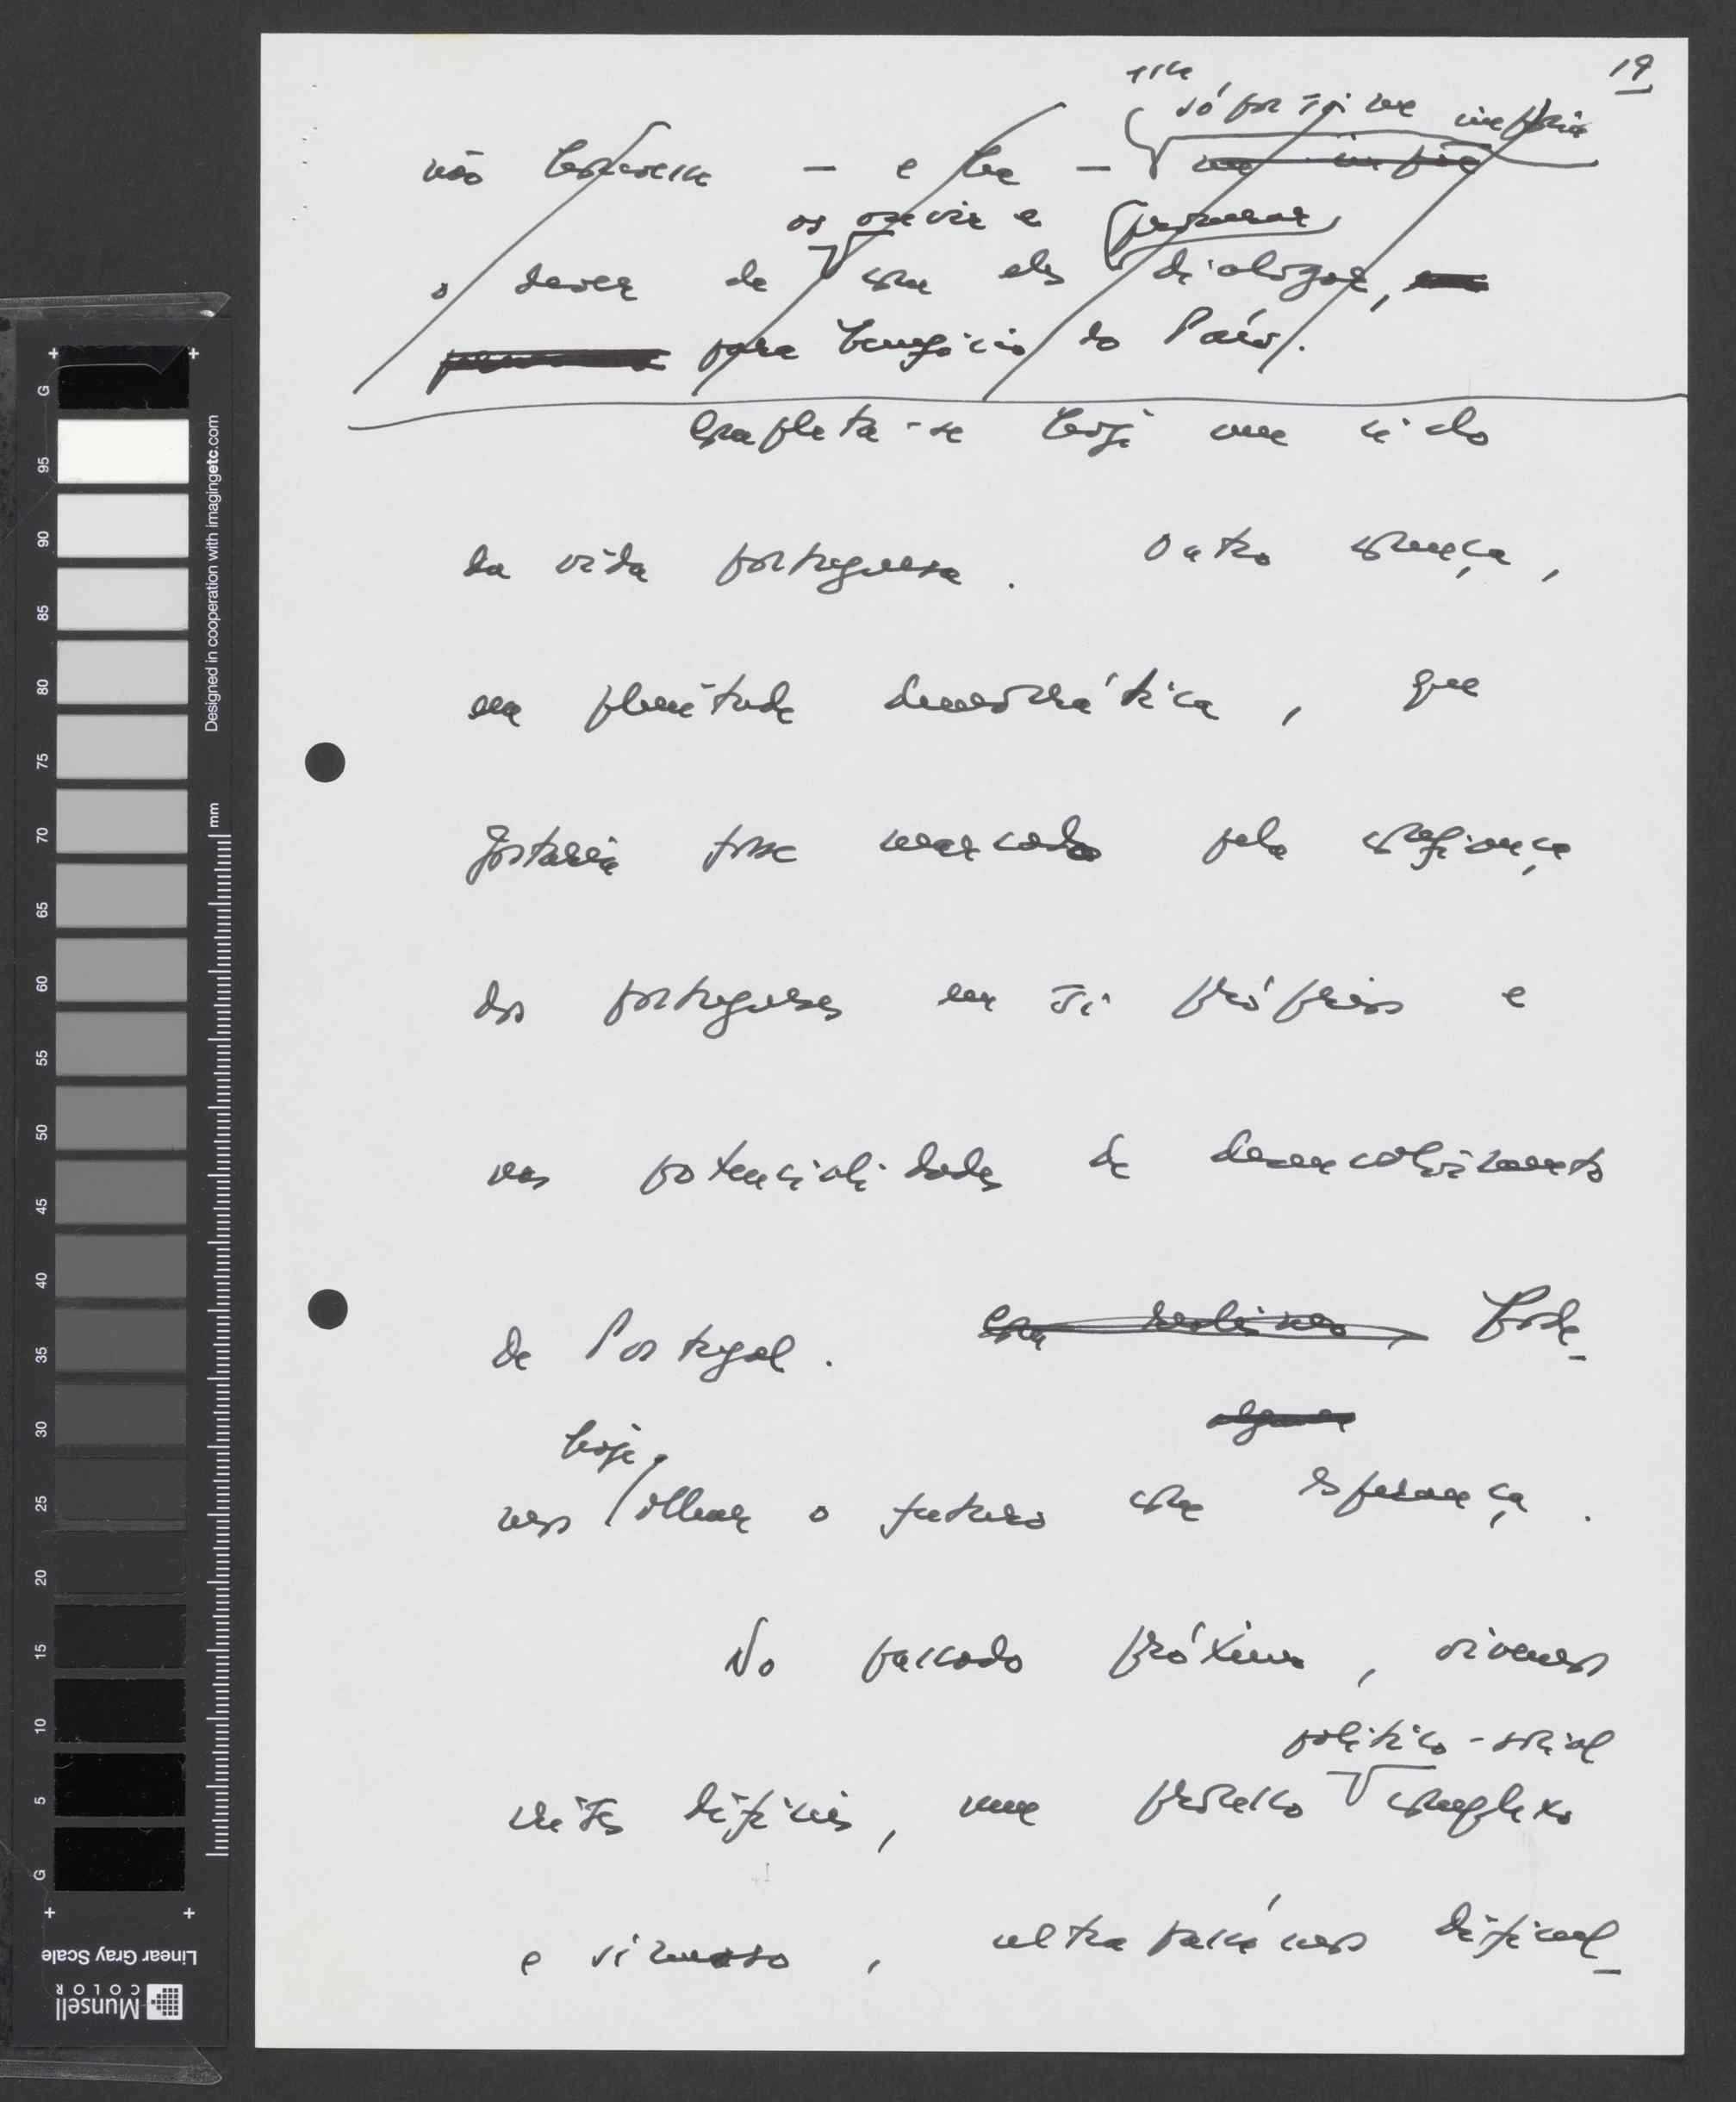 19
isso
só por si me impõria
não houvesse — e há — me impõe
os ouvir e procurar
o dever de com eles dialogar,
para benefício do País.
Completa-se hoje um ciclo
da vida portuguesa. Outro começa,
em plenitude democrática, que
gostaria fosse marcado pela confiança
dos portugueses em si próprios e
nas potencialidades de desenvolvimento
de Portugal. Pode-
alguma
hoje
mos olhar o futuro com esperança.
No passado próximo, vivemos
político-social
dias difíceis, num processo complexo
e sinuoso, ultrapassámos dificul-
G
95
90
85
80
75
70
65
60
55
50
45
40
35
30
25
20
15
10
5
G
mm
Designed in cooperation with imagingetc.com
Linear Gray Scale
Munsell
COLOR